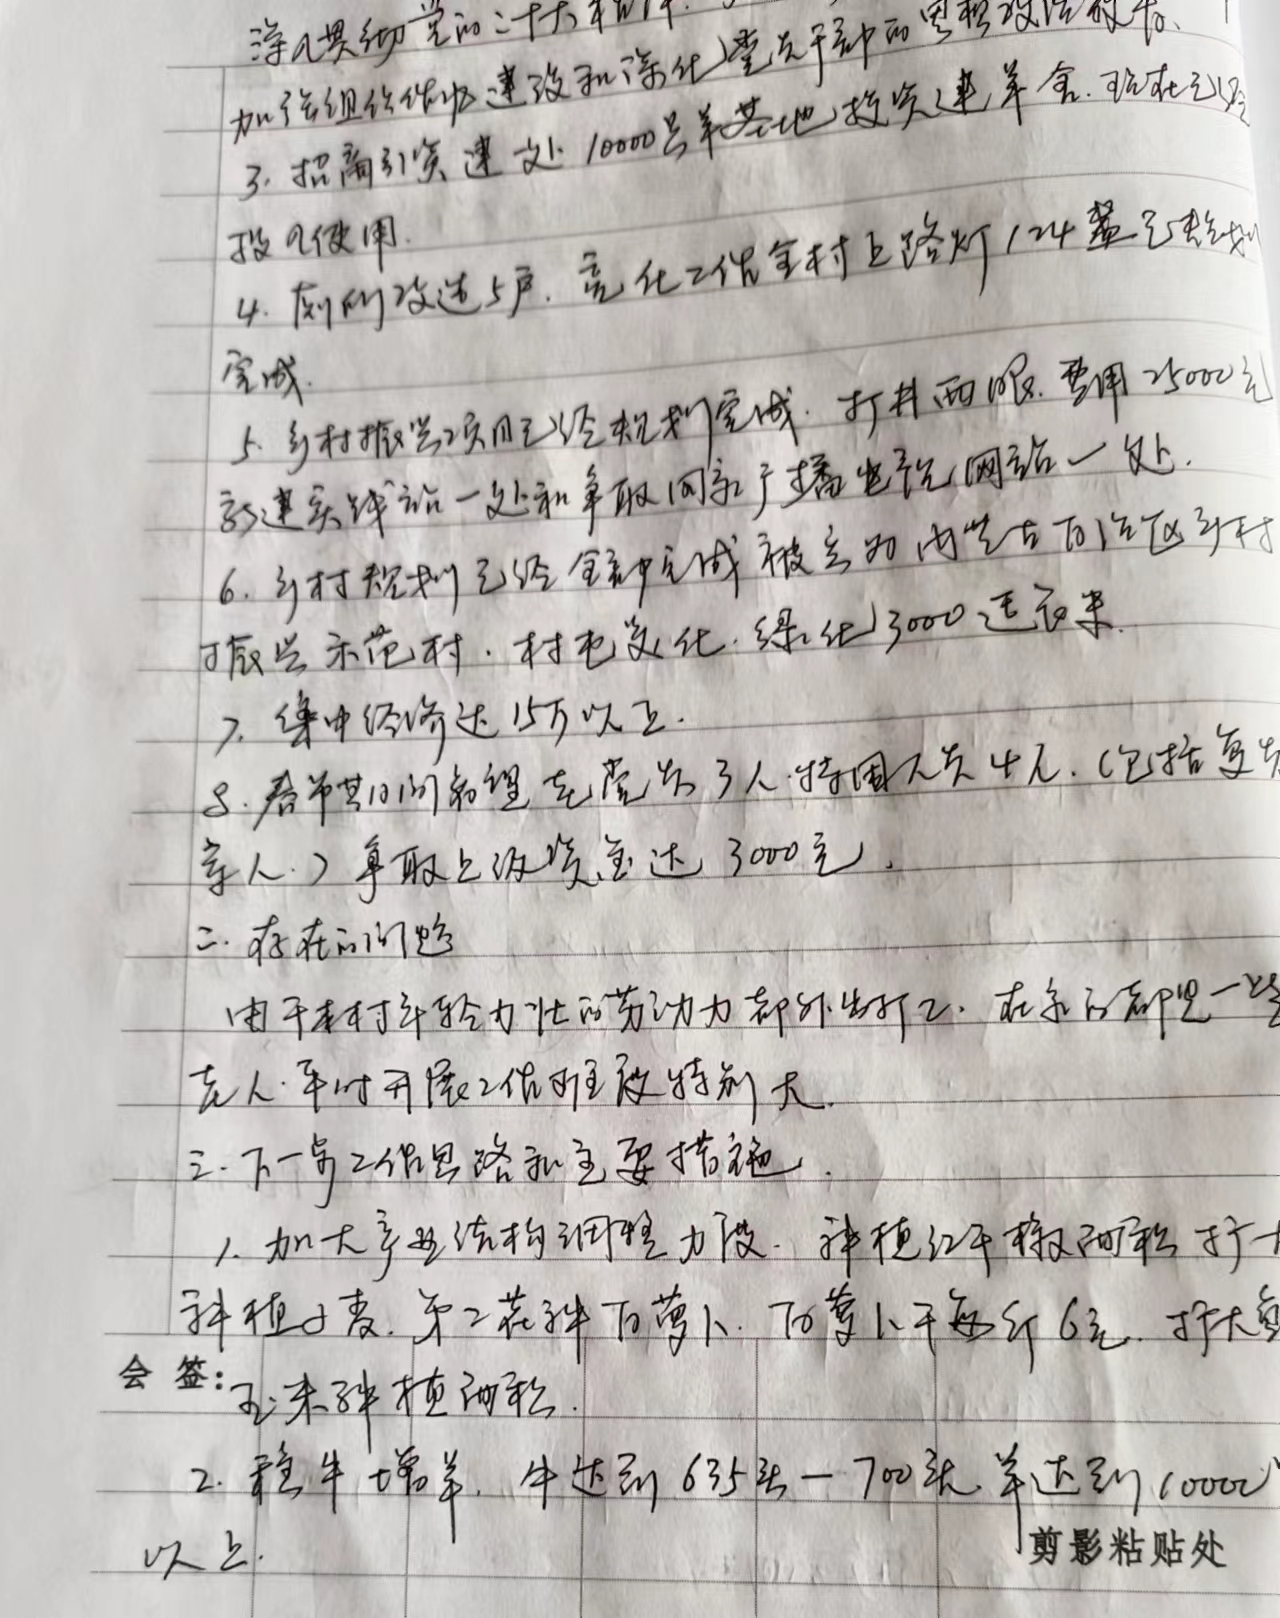 深入贯彻党的二十大精神.
加强组织作风建设和深化党员干部的思想政治教育、
3. 招商引资建一处10000只羊基地投资建羊舍.现在已经
投入使用.
4. 厕所改造5户.亮化工作全村上路灯124盏已规划
完成.
5. 乡村振兴项目已经规划完成.打井两眼.费用25000元
新建实践站一处和争取国家广播电视网站一处.
6. 乡村规划已经全部完成被立为内蒙古自治区乡村
振兴示范村.村屯美化.绿化13000延长米.
7. 集中经济达15万以上.
8. 春节其间问慰老党员3人.特困人员4人.(包括
亲人.)争取上级资金达3000元.
二.存在的问题
由于本村年轻力壮的劳动力都外出打工.在家的都是一些
老人.平时开展工作难度特别大.
三.下一步工作思路和主要措施.
1. 加大产业结构调整力度.种植红干椒面积扩大
种植小麦.第二茬种白萝卜.白萝卜干每斤6元.扩大
会 签:
玉米种植面积.
2. 稳牛增羊.牛达到635头—700头羊达到10000
以上.
剪影粘贴处